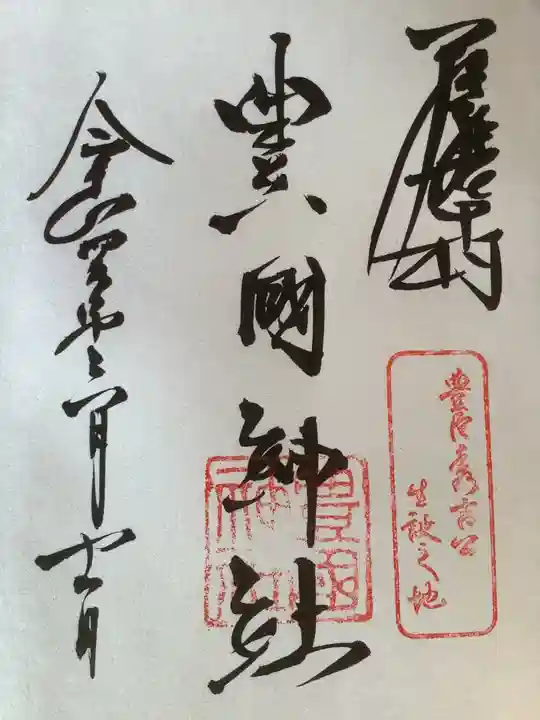 奉拝
豊臣秀吉公
生誕之地
豊國神社
令和四年六月十一日